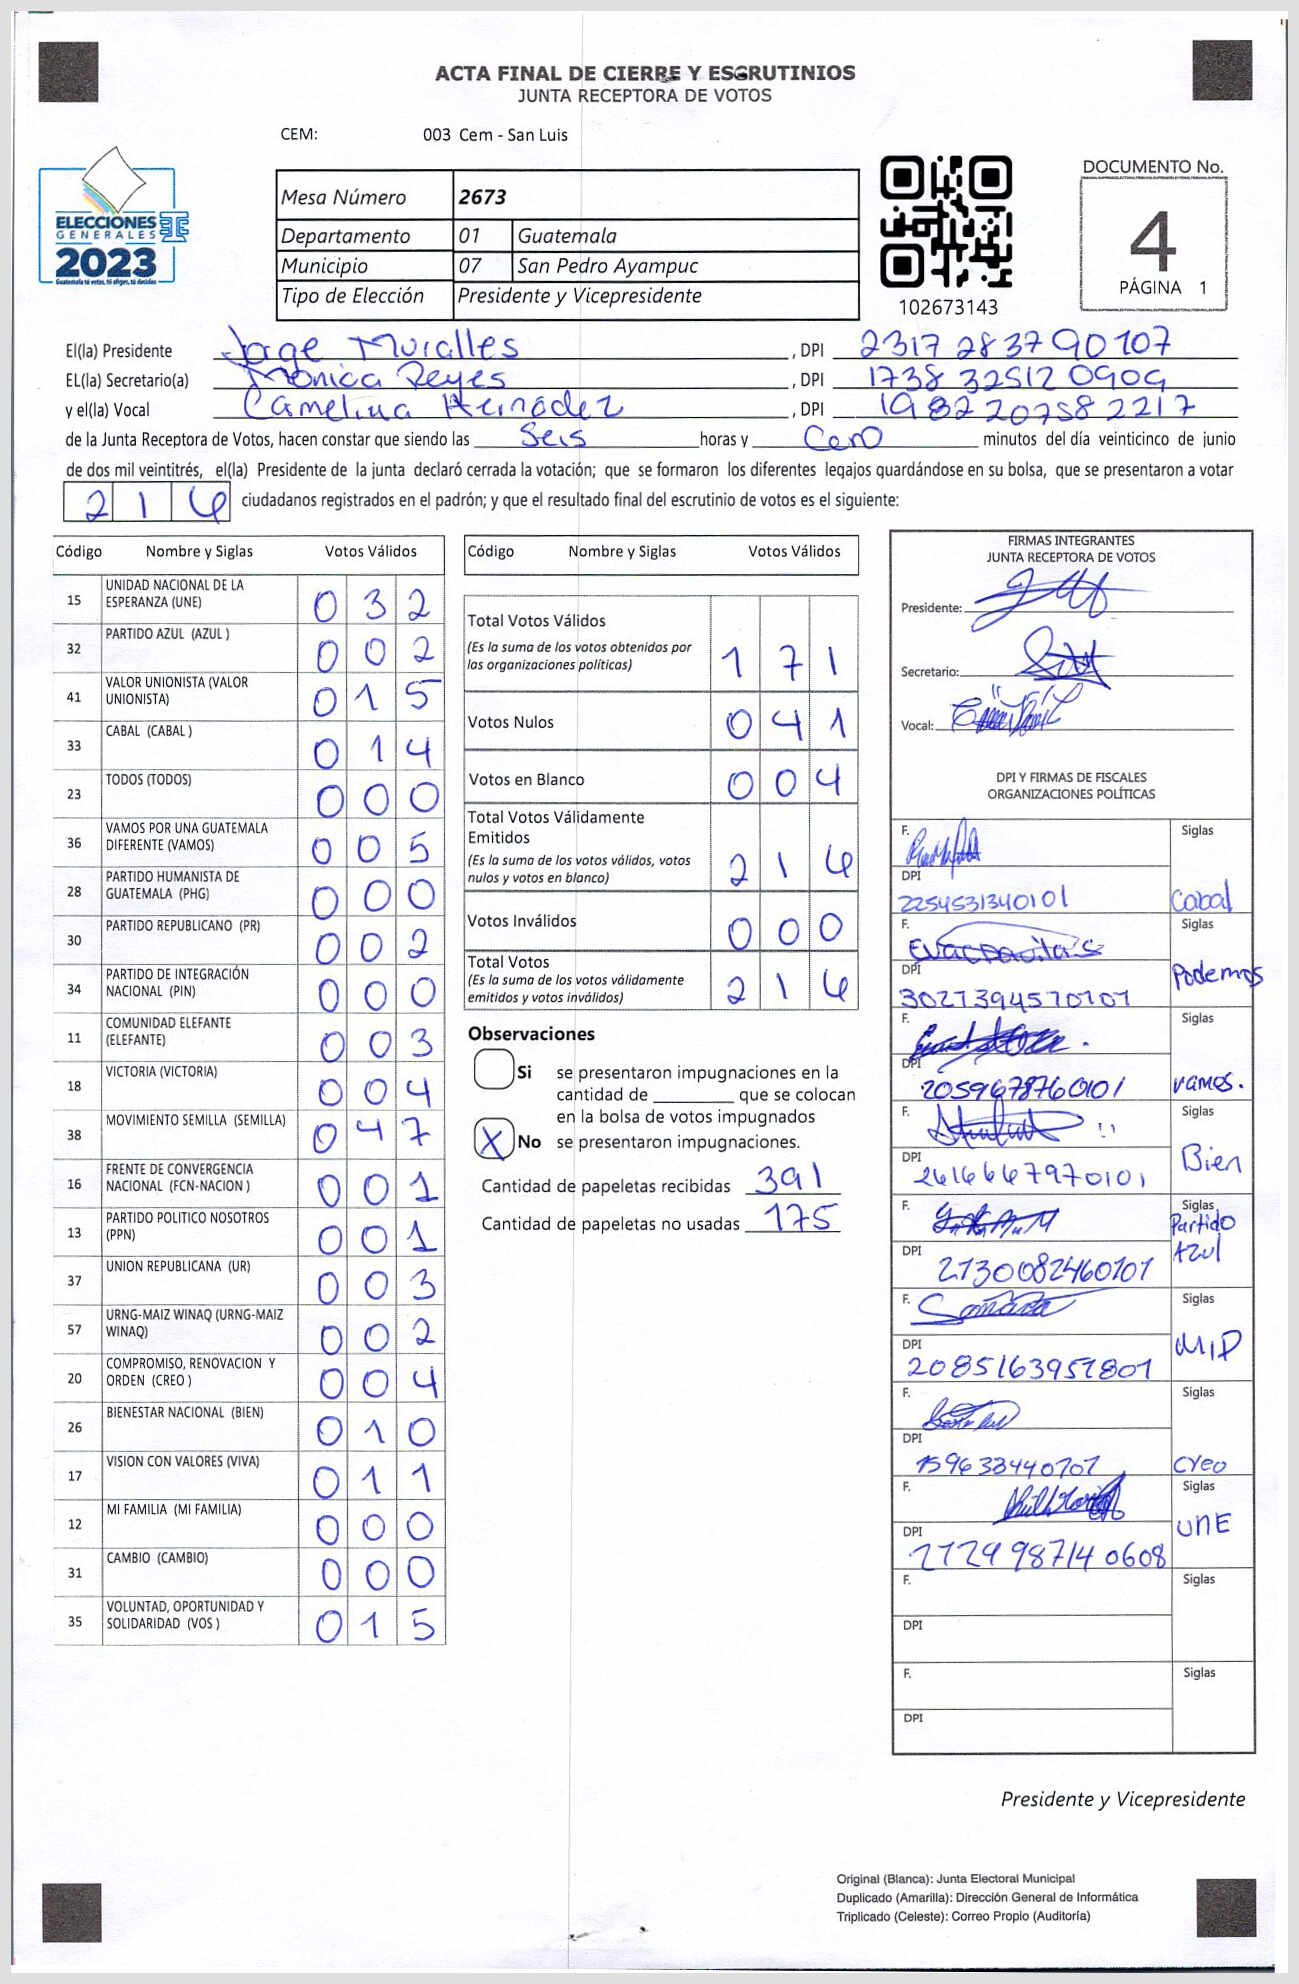 ACTA FINAL DE CIERRE Y ESCRUTINIOS
JUNTA RECEPTORA DE VOTOS
CEM: 003 Cem - San Luis
ELECCIONES
GENERALES
2023
Guatemala tú votas, tú eliges, tú decides
Mesa Número 2673
Departamento 01 Guatemala
Municipio 07 San Pedro Ayampuc
Tipo de Elección Presidente y Vicepresidente
102673143
DOCUMENTO No.
4
PÁGINA 1
El(la) Presidente Jorge Muralles , DPI 2317 28379 0107
EL(la) Secretario(a) Monica Reyes , DPI 1738 32512 0909
y el(la) Vocal Camelina , DPI 1982 20758 2217
de la Junta Receptora de Votos, hacen constar que siendo las Seis horas y Cero minutos del día veinticinco de junio
de dos mil veintitrés, el(la) Presidente de la junta declaró cerrada la votación; que se formaron los diferentes legajos guardándose en su bolsa, que se presentaron a votar
216 ciudadanos registrados en el padrón; y que el resultado final del escrutinio de votos es el siguiente:
Código Nombre y Siglas Votos Válidos
15 UNIDAD NACIONAL DE LA ESPERANZA (UNE) 032
32 PARTIDO AZUL (AZUL ) 002
41 VALOR UNIONISTA (VALOR UNIONISTA) 015
33 CABAL (CABAL ) 014
23 TODOS (TODOS) 000
36 VAMOS POR UNA GUATEMALA DIFERENTE (VAMOS) 005
28 PARTIDO HUMANISTA DE GUATEMALA (PHG) 000
30 PARTIDO REPUBLICANO (PR) 002
34 PARTIDO DE INTEGRACIÓN NACIONAL (PIN) 000
11 COMUNIDAD ELEFANTE (ELEFANTE) 003
18 VICTORIA (VICTORIA) 004
38 MOVIMIENTO SEMILLA (SEMILLA) 047
16 FRENTE DE CONVERGENCIA NACIONAL (FCN-NACION ) 001
13 PARTIDO POLITICO NOSOTROS (PPN) 001
37 UNION REPUBLICANA (UR) 003
57 URNG-MAIZ WINAQ (URNG-MAIZ WINAQ) 002
20 COMPROMISO, RENOVACION Y ORDEN (CREO ) 004
26 BIENESTAR NACIONAL (BIEN) 010
17 VISION CON VALORES (VIVA) 011
12 MI FAMILIA (MI FAMILIA) 000
31 CAMBIO (CAMBIO) 000
35 VOLUNTAD, OPORTUNIDAD Y SOLIDARIDAD (VOS ) 015
Código Nombre y Siglas Votos Válidos
Total Votos Válidos 171
(Es la suma de los votos obtenidos por
las organizaciones políticas)
Votos Nulos 041
Votos en Blanco 004
Total Votos Válidamente
Emitidos 216
(Es la suma de los votos válidos, votos
nulos y votos en blanco)
Votos Inválidos 000
Total Votos 216
(Es la suma de los votos válidamente
emitidos y votos inválidos)
Observaciones
Si se presentaron impugnaciones en la
cantidad de ________ que se colocan
en la bolsa de votos impugnados
X No se presentaron impugnaciones.
Cantidad de papeletas recibidas 391
Cantidad de papeletas no usadas 175
FIRMAS INTEGRANTES
JUNTA RECEPTORA DE VOTOS
Presidente:
Secretario:
Vocal:
DPI Y FIRMAS DE FISCALES
ORGANIZACIONES POLÍTICAS
F. Siglas
DPI 2254531340101 Cabal
F. Siglas
DPI 3021394570101 Podemos
F. Siglas
DPI 2059678760101 vamos.
F. Siglas
DPI 2616667970101 Bien
F. Siglas
DPI 2130082460101 Partido Azul
F. Siglas
DPI 2085163951801 MIP
F. Siglas
DPI Creo
F. Siglas
DPI UNE
F. Siglas
DPI
F. Siglas
DPI
Presidente y Vicepresidente
Original (Blanca): Junta Electoral Municipal
Duplicado (Amarilla): Dirección General de Informática
Triplicado (Celeste): Correo Propio (Auditoría)